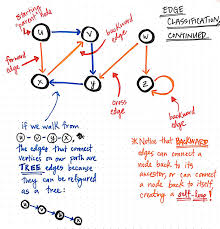 EDGE
CLASSIFICATION,
CONTINUED
starting
"parent" node
backward
edge
forward
edge
u
v
w
x
y
z
cross
edge
backward
edge
if we walk from
u-v-y-x,
the edges that connect
vertices on our path are
TREE edges because
they can be refigured
as a tree:
* Notice that BACKWARD
edges can connect a
node back to its
ancestor, or can connect
a node back to itself,
creating a self-loop!